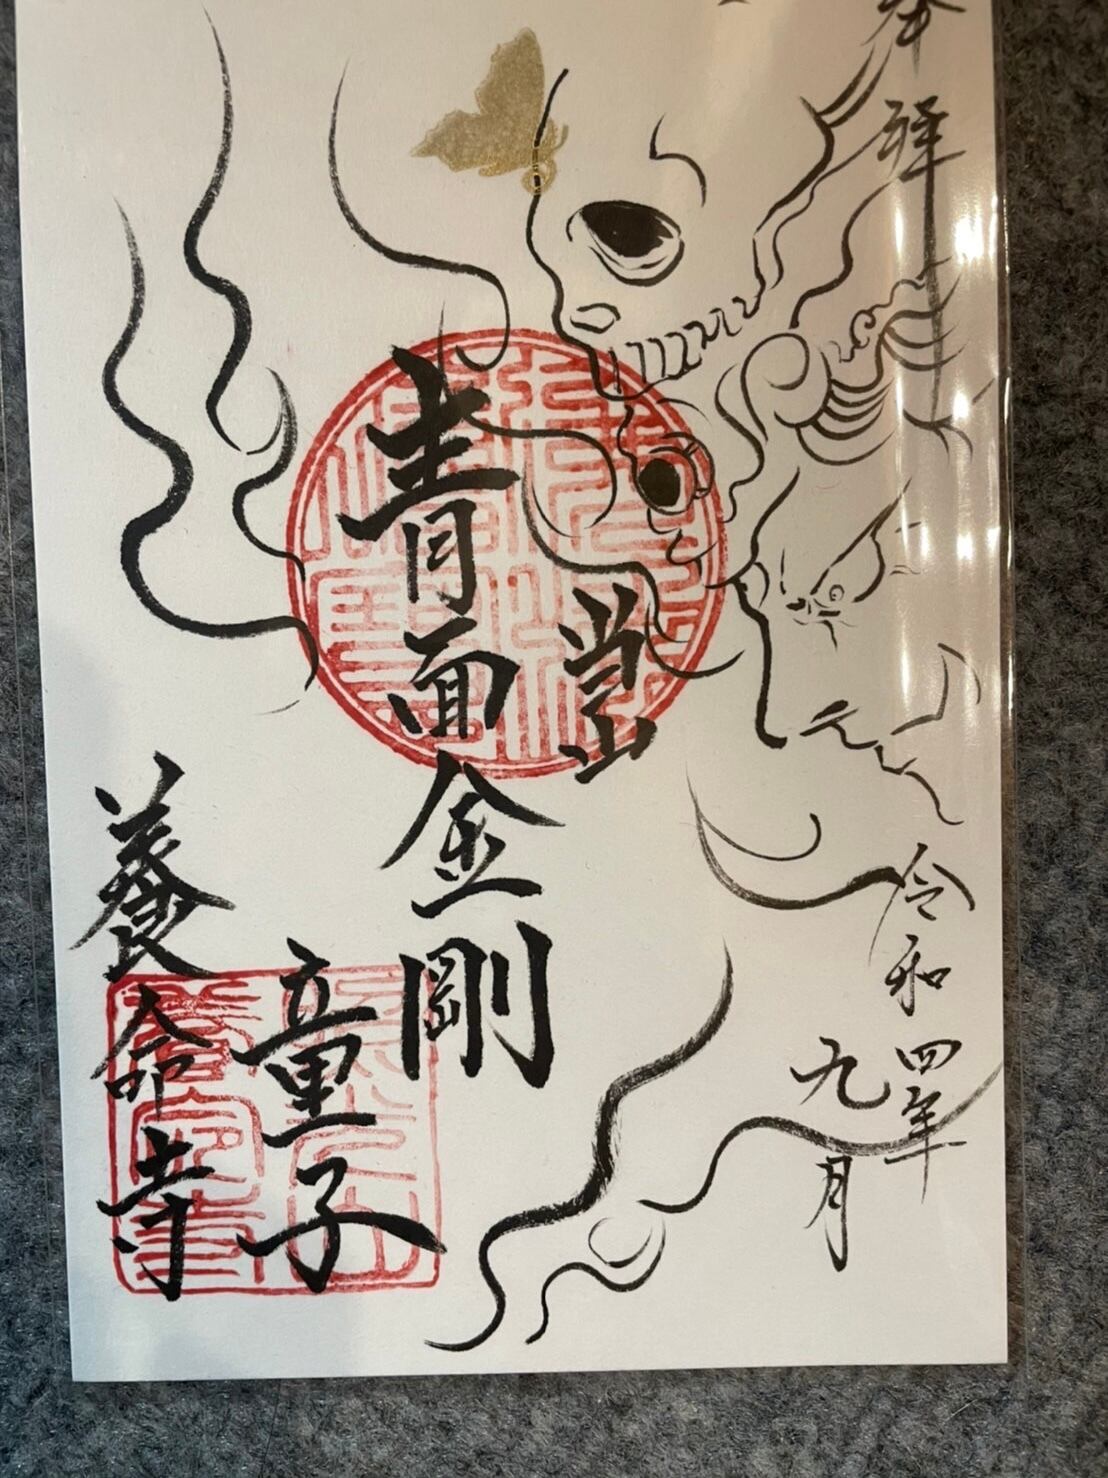 奉拝
令和四年
九月
当山
青面金剛
童子
養命寺